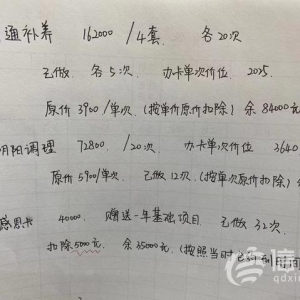 通补养 162000 /4套 各20次
已做 各5次. 办卡单次价位 2025
原价 3900/单次 (按单价原价扣除) 余 84000元
阴阳调理 72800 /20次 办卡单次价位 3640
原价 5900/单次. 已做 12次. (按单次原价扣除)
感恩卡 40000 赠送一年基础项目 已做 32次
扣除5000元 余 35000元 (按照当时